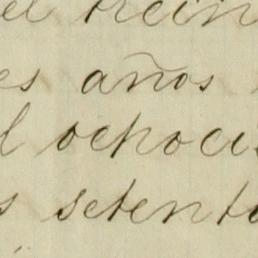 el trein
es años
l ochoci
s setenta